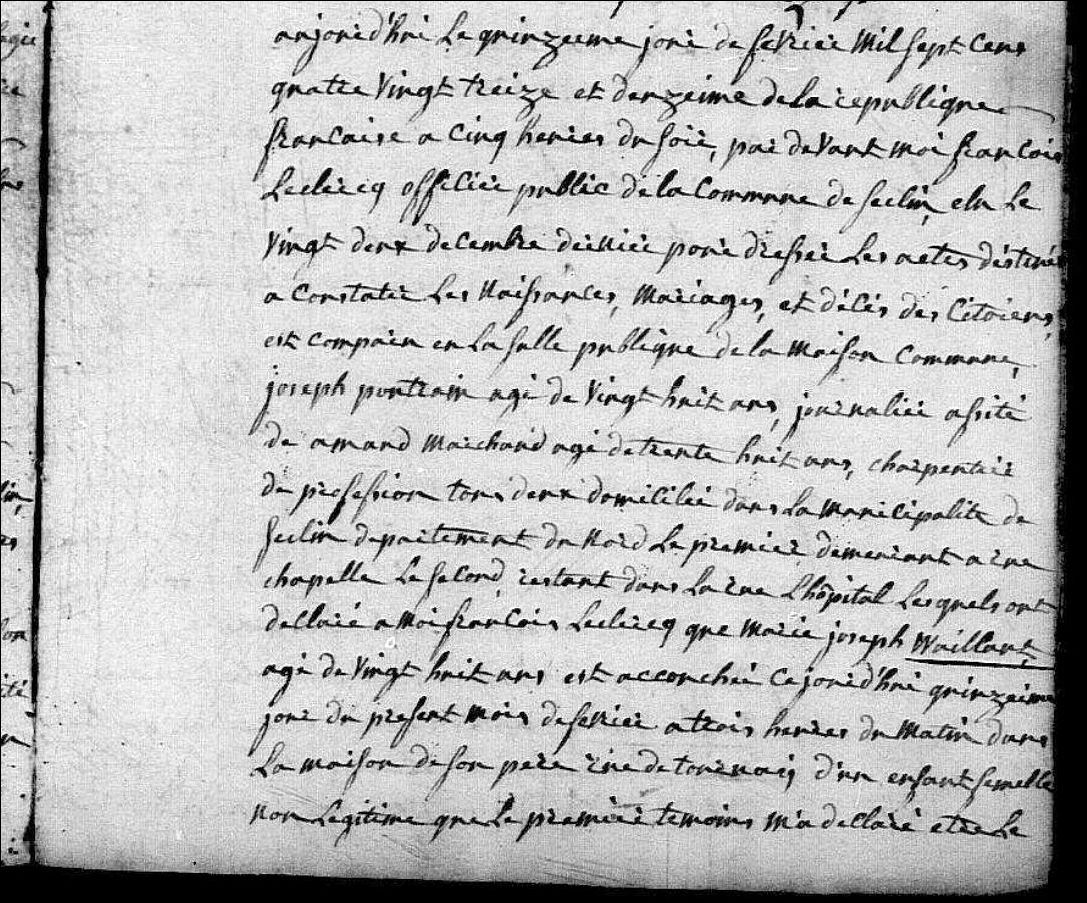 aujourd'hui le quinzieme jour de fevrier mil sept cens
quatre vingt treize et deuxeime de la republique
francaise a cinq heures du soir, par devant moi francois
Leclercq officier public de la Commune de Seclin, elu le
vingt deux decembre dernier pour dresser les actes destinés
a constater les naissances, mariages, et décés des Citoiens,
est comparu en la salle publique de la maison commune,
joseph pontrain agé de vingt huit ans, journalier assité
de amand marchand agé de trente huit ans, charpentier
de profession tous deux domicilié dans la municipalité de
Seclin departement du Nord le premier demeurant a rue
chapelle le second, restant dans la rue Lhôpital lesquels ont
dellaré a moi francois Leclercq que marie joseph Waillant,
agé de vingt huit ans est accouchée ce jourd'hui quinzeime
jour du present mois de fevrier a trois heures du matin dans
la maison de son pere rue de tournay d'un enfant femelle
non legitime que le premier temoins m'a dellaré etre le